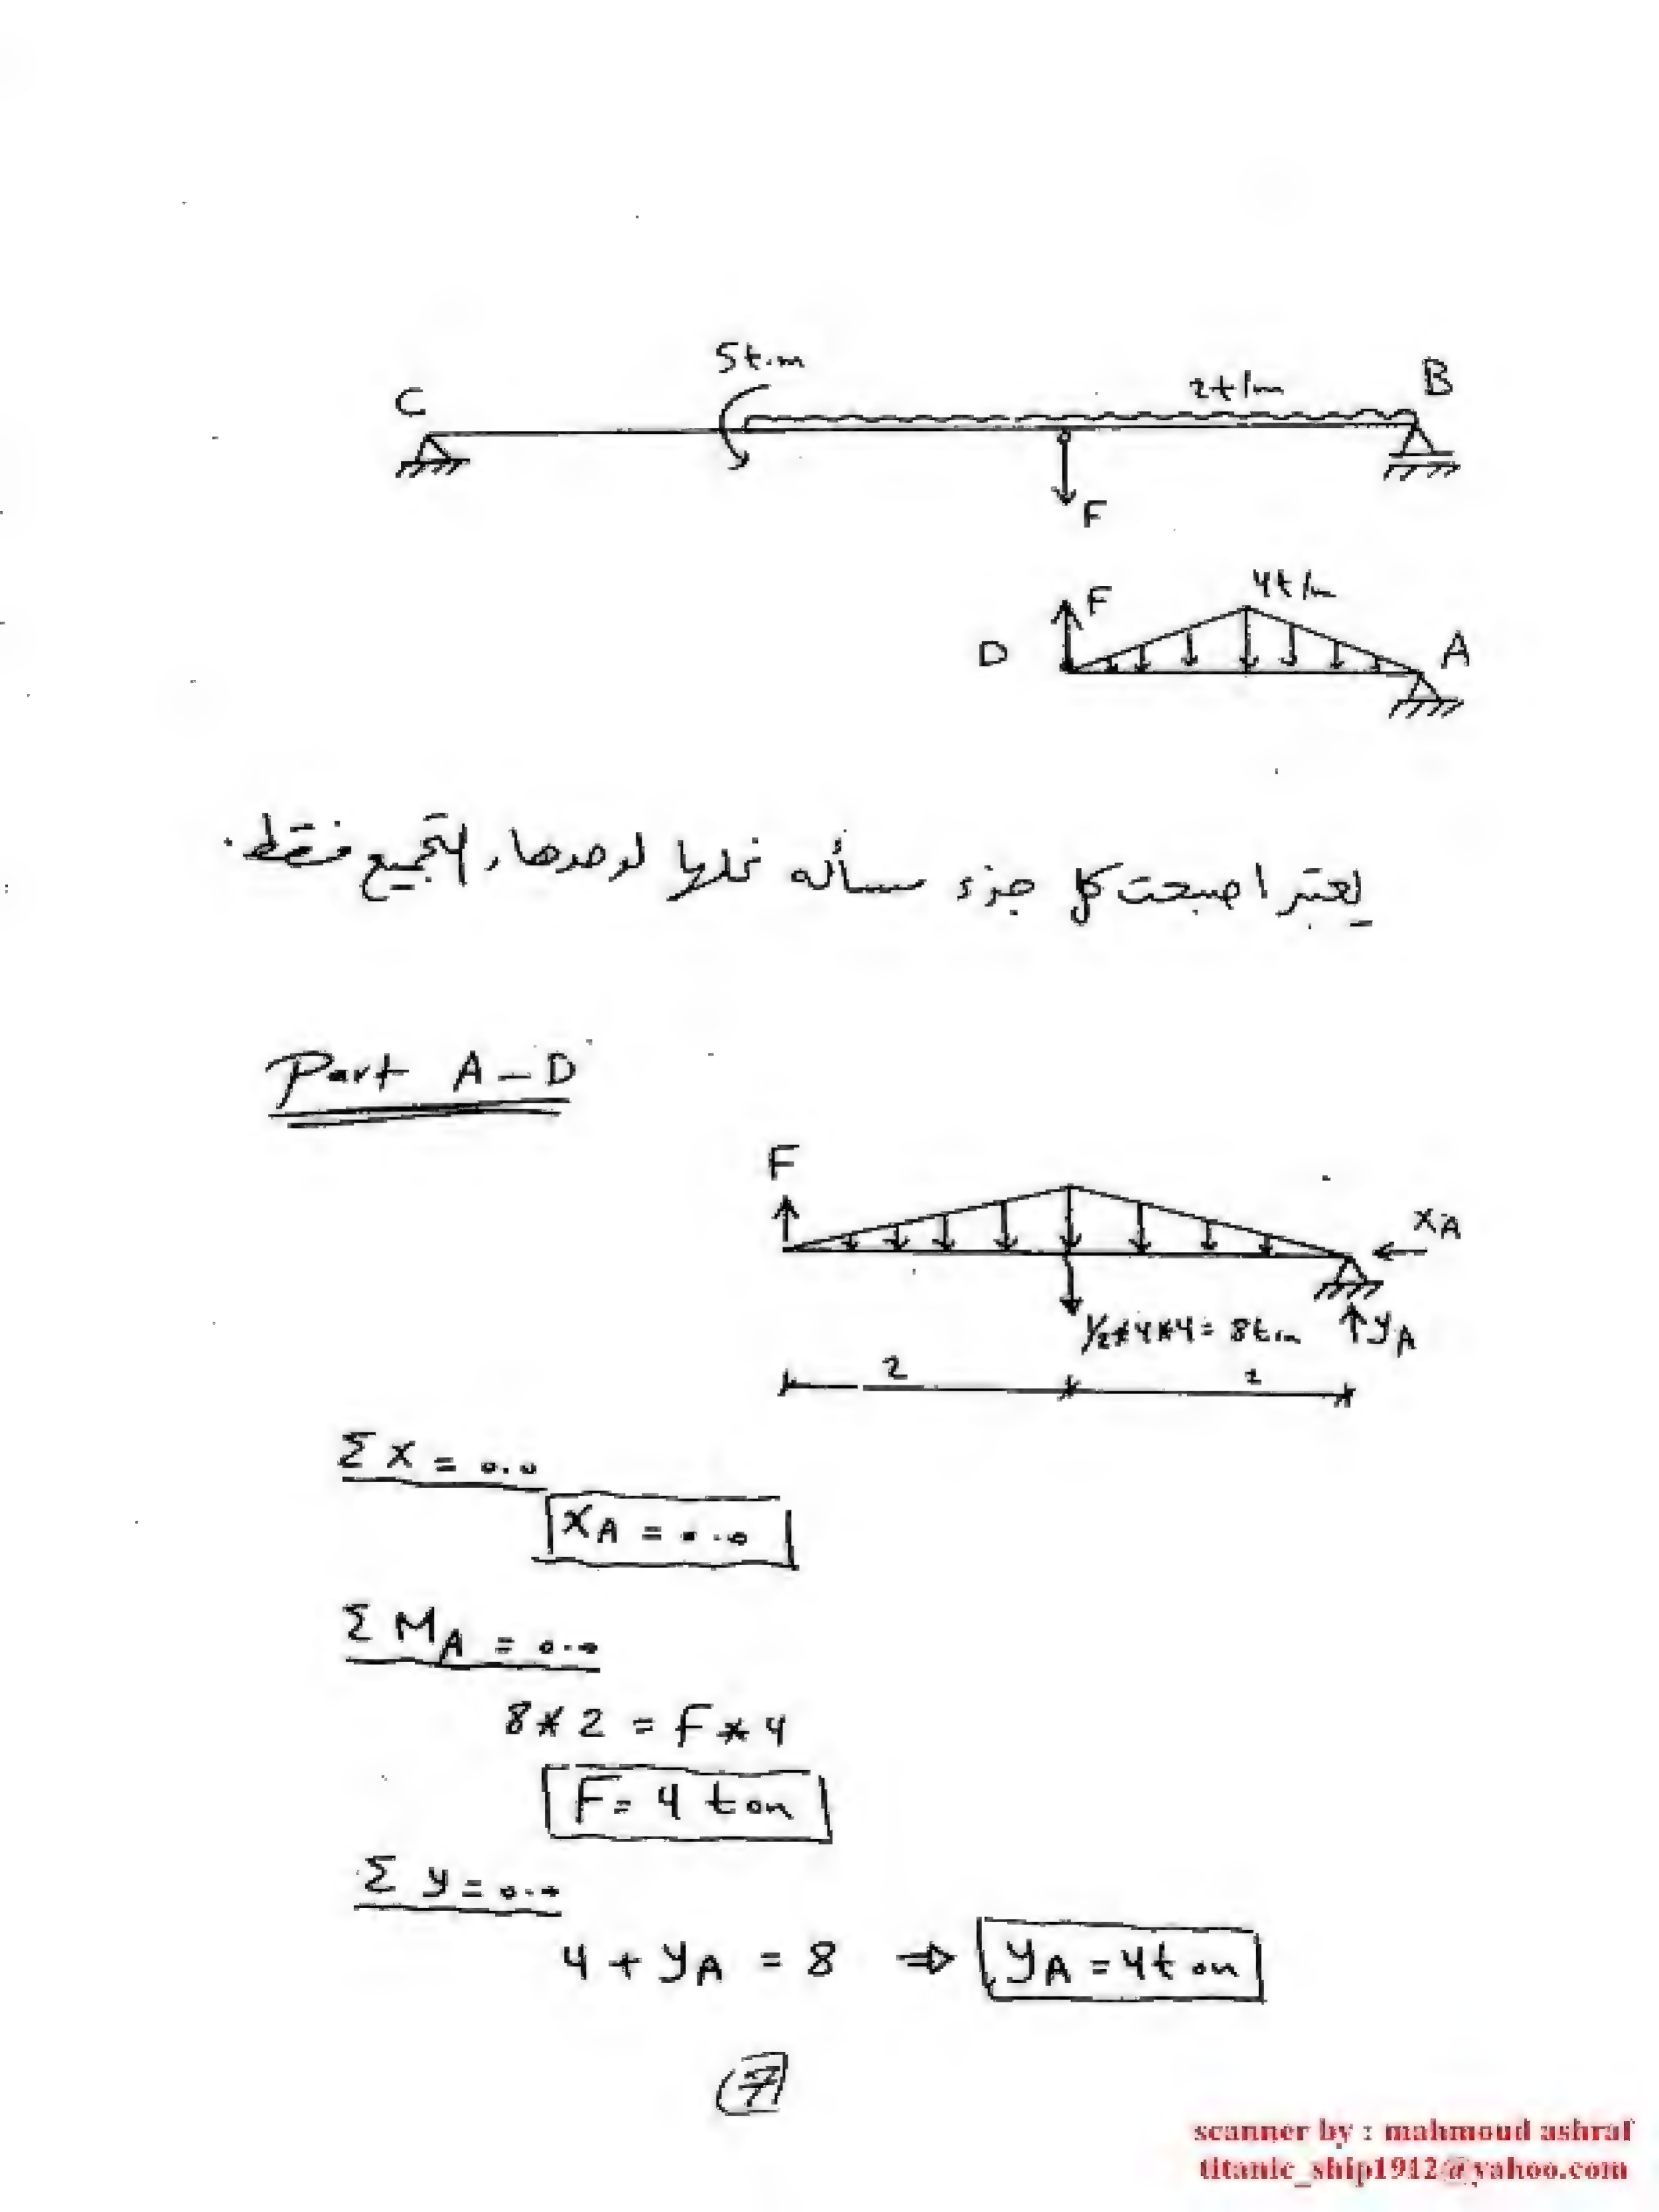 5t.m
2t/m
C
B
F
F
4t/m
D
A
يعتبر اصبحت كل جزء مسأله نحلها لوحدها، التجميع فقط.
Part A-D
F
XA
1/2*4*4= 8tm
yA
2
2
ΣX = 0.0
XA = 0.0
ΣMA = 0.0
8*2 = F*4
F= 4 ton
Σy=0.0
4 + yA = 8 ⇒ yA = 4ton
7
scanner by : mahmoud ashraf
titanic_ship1912@yahoo.com